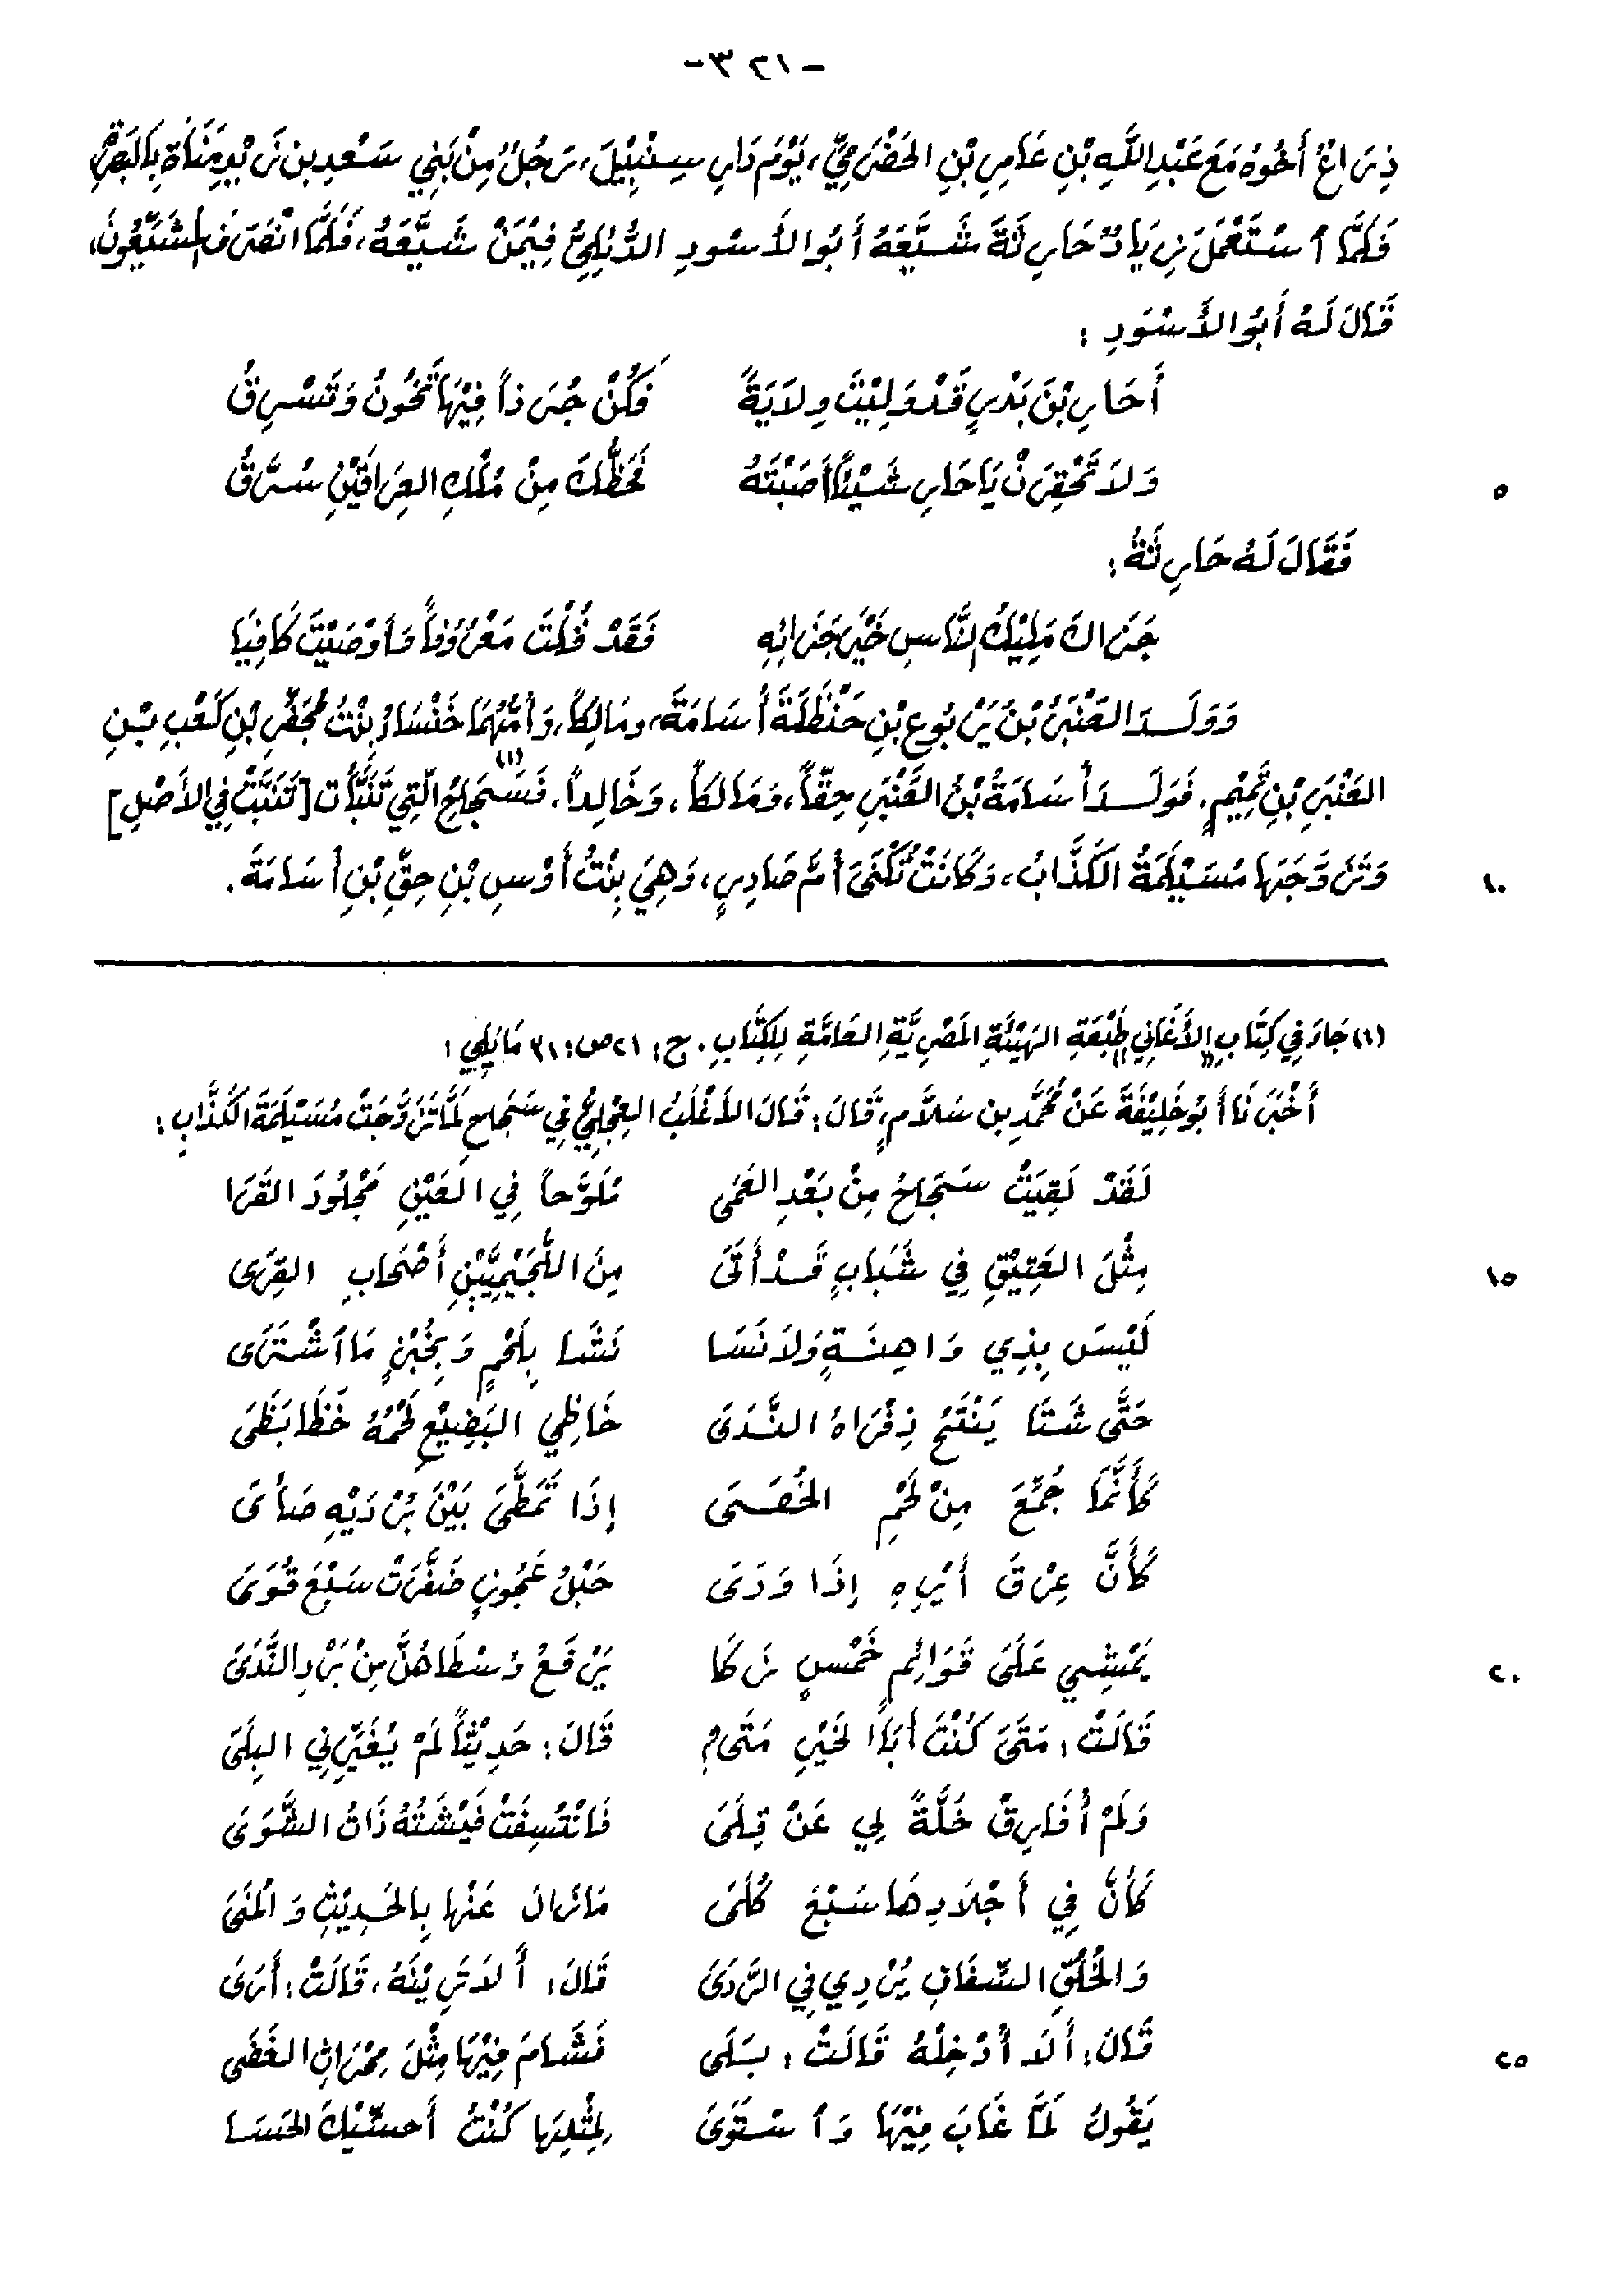 -٣٢١-
ذِرَاعُ أَخُوهُ مَعَ عَبْدِ اللَّهِ بْنِ عَامِرِ بْنِ الحَضْرَمِيِّ، يَوْمَ دَارِ سِنْبِيْلَ، رَجُلٌ مِنْ بَنِي سَعْدِ بن زَيْدِ مَنَاةَ بِالبَصْرَةِ
فَلَمَّا ٱسْتَعْمَلَ زِيَادٌ حَارِثَةَ شَيَّعَهُ أَبُو الأَسْوَدِ الدُّئِلِيُّ فِيْمَنْ شَيَّعَهُ، فَلَمَّا انْصَرَفَ المُشَيِّعُونَ،
قَالَ لَهُ أَبُو الأَسْوَدِ :
أَحَارِ بْنَ بَدْرٍ قَدْ وَلِيْتَ وِلاَيَةً فَكُنْ جُرَذاً فِيْهَا تَخُونُ وَتَسْرِقُ
وَلاَ تَحْقِرَنْ يَا حَارِ شَيْئاً أَصَبْتَهُ فَحَظُّكَ مِنْ مُلْكِ العِرَاقَيْنِ سُرَّقُ
٥
فَقَالَ لَهُ حَارِثَةُ :
جَزَاكَ مَلِيْكُ النَّاسِ خَيْرَ جَزَائِهِ فَقَدْ قُلْتَ مَعْرُوفاً وَأَوْصَيْتَ كَافِيَا
وَوَلَدَ العَنْبَرُ بْنُ يَرْبُوعِ بْنِ حَنْظَلَةَ أُسَامَةَ، ومَالِكاً، وَأُمُّهُمَا خَنْسَاءُ بِنْتُ مُجَفِّرِ بْنِ كَعْبِ بْنِ
العَنْبَرِ بْنِ تَمِيْمٍ. فَوَلَدَ أُسَامَةُ بْنُ العَنْبَرِ حِقّاً، وَمَالِكاً، وَخَالِداً. فَسَجَاحُ (١) الَّتِي تَنَبَّأَت [تَنَبَّتْ فِي الأَصْلِ]
وَتَزَوَّجَهَا مُسَيْلَمَةُ الكَذَّابُ، وَكَانَتْ تُكْنَى أُمَّ صَادِرٍ، وَهِيَ بِنْتُ أَوْسِ بْنِ حِقِّ بْنِ أُسَامَةَ.
١٠
(١) جَاءَ فِي كِتَابِ "الأَغَانِي" طَبْعَةِ الهَيْئَةِ المَصْرِيَّةِ العَامَّةِ لِلكِتَابِ. ج: ٢١ ص: ٣١ مَا يَلِي :
أَخْبَرَنَا أَبُو خَلِيْفَةَ عَنْ مُحَمَّدِ بن سَلاَّمٍ، قَالَ: قَالَ الأَغْلَبُ العِجْلِيُّ فِي سَجَاحِ لَمَّا تَزَوَّجَتْ مُسَيْلَمَةَ الكَذَّابِ :
لَقَدْ لَقِيَتْ سَجَاحُ مِنْ بَعْدِ العَمَى مُلَوَّحاً فِي العَيْنِ مَجْلُودَ القَرَا
مِثْلَ العَتِيْقِ فِي شَبَابٍ قَدْ أَتَى مِنَ اللُّجَيْمِيِّيْنِ أَصْحَابِ القِرَى
١٥
لَيْسَ بِذِي وَاهِنَةٍ وَلاَ نَسَا نَشَا بِلَحْمٍ وَبِخُبْزٍ مَا ٱشْتَرَى
حَتَّى شَتَا يَنْتَحُ ذِفْرَاهُ النَّدَى خَاظِي البَضِيْعِ لَحْمُهُ خَظَا بَظَى
كَأَنَّمَا جُمِّعَ مِنْ لَحْمِ الخُصَى إِذَا تَمَطَّى بَيْنَ بُرْدَيْهِ صَأَى
كَأَنَّ عِرْقَ أَيْرِهِ إِذَا وَدَى حَبْلُ عَجُوزٍ ضَفَّرَتْ سَبْعَ قُوَى
يَمْشِي عَلَى قَوَائِمٍ خَمْسٍ زَكَا يَرْفَعُ وُسْطَاهُنَّ مِنْ بَرْدِ النَّدَى
٢٠
قَالَتْ : مَتَى كُنْتَ أَبَا الخَيْرِ مَتَى؟ قَالَ: حَدِيْثاً لَمْ يُغَيِّرْنِي البِلَى
وَلَمْ أُفَارِقْ خُلَّةً لِي عَنْ قِلَى فَانْتُسِفَتْ فَيْشَتُهُ ذَاتُ الشَّوَى
كَأَنَّ فِي أَجْلاَدِهَا سَبْعَ كُلَى مَا زَالَ عَنْهَا بِالحَدِيْثِ وَالمُنَى
وَالخُلُقِ السِّفَافِ يُرْدِي فِي الرَّدَى قَالَ: أَلاَ تَرِيْنَهُ، قَالَتْ: أَرَى
قَالَ: أَلاَ أُدْخِلُهُ قَالَتْ: بَلَى فَشَامَ فِيْهَا مِثْلَ مِحْرَاثِ الغَضَى
٢٥
يَقُولُ لَمَّا غَابَ فِيْهَا وَٱسْتَوَى لِمِثْلِهَا كُنْتُ أُحَسِّيْكَ الحَسَا